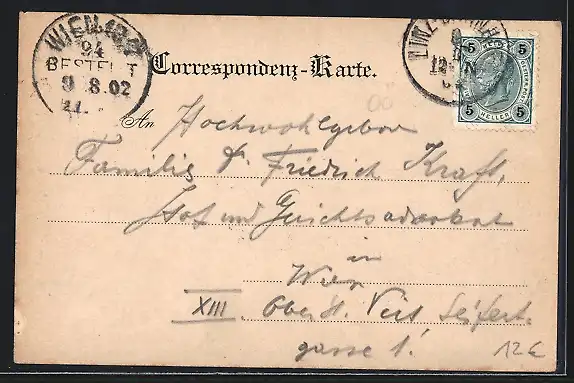 WIEN
94
BESTELLT
9 8.02
LINZ
5 5
HELLER
5 5
Correspondenz-Karte.
An Hochwohlgebor
Familie Dr. Friedrich Kraft,
Hof und Gerichtsadvokat
in
Wien
XIII. Ober St. Veit Seifert
gasse 1!
12€